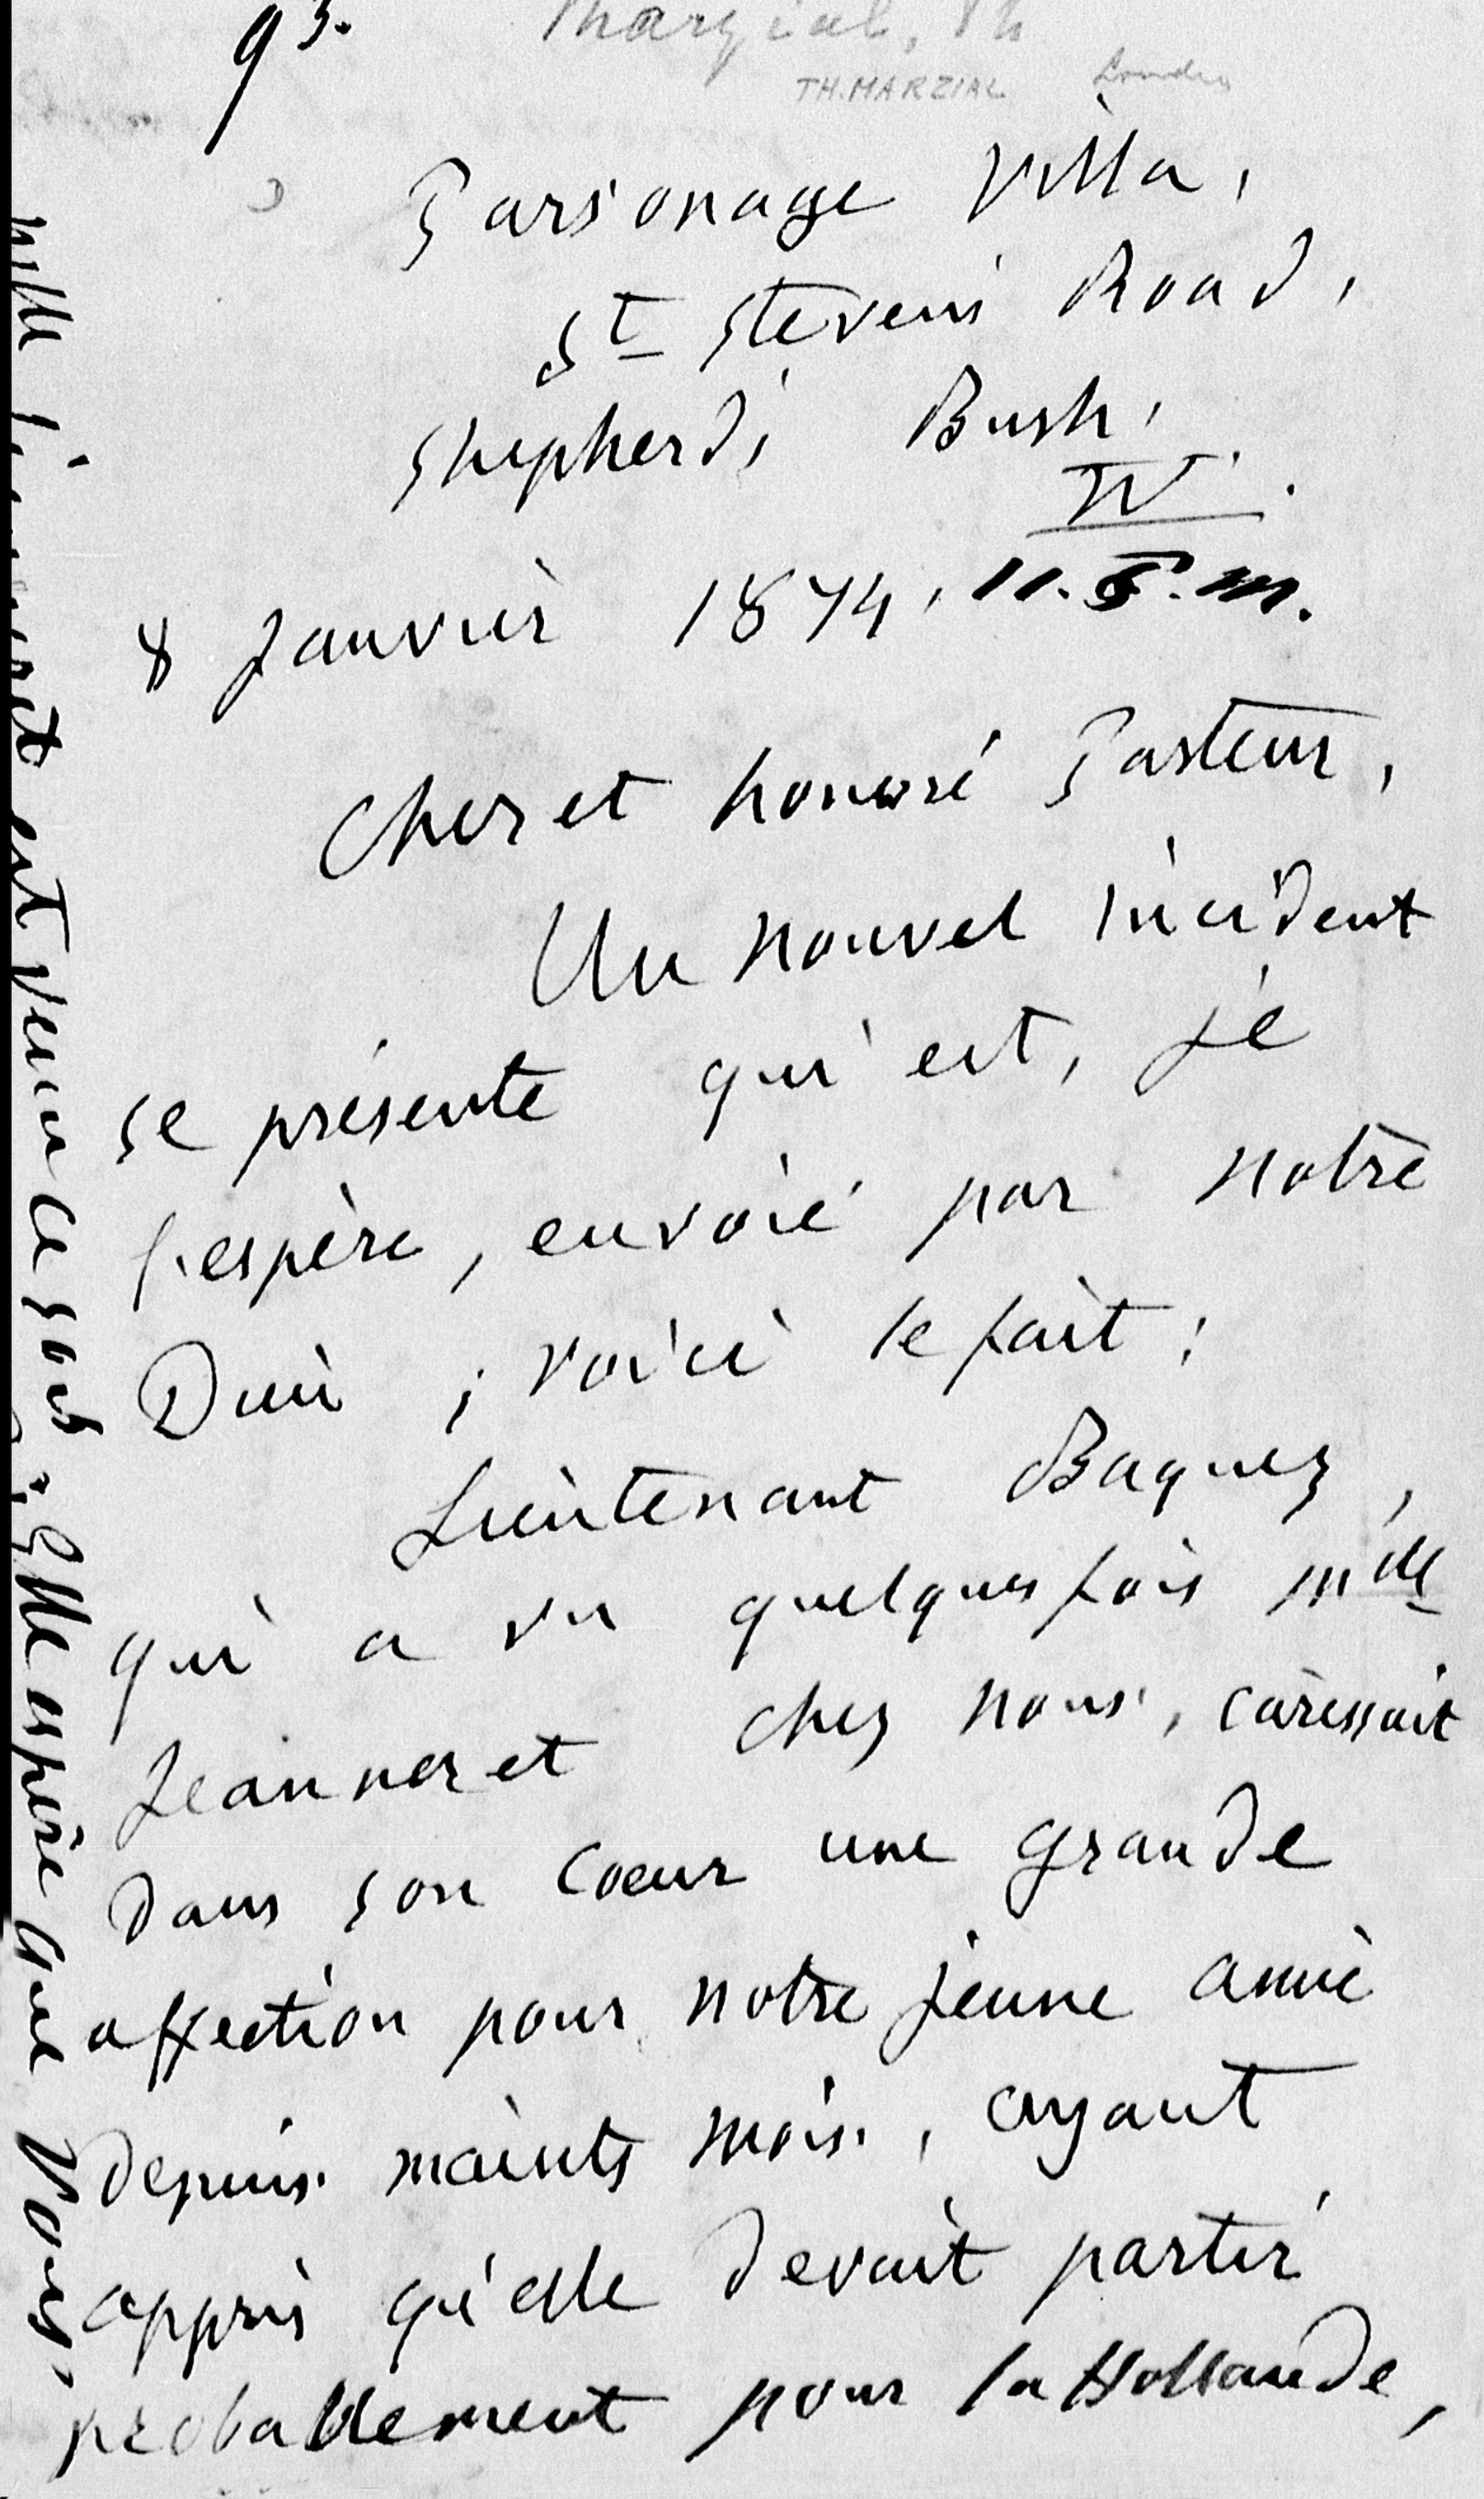 93.
Marzial, Th
TH. MARZIAL Londres
Parsonage Villa,
St Stevens Road,
Shepherds Bush.
W.
8 Janvier 1874, 11. P. m.
Cher et honoré Pasteur,
Un nouvel incident
se présente qui est, je
l'espère, envoié par notre
Dieu ; voici le fait :
Lieutenant Baquez,
qui a vu quelques fois Mdlle
Jeanneret chez nous, caressait
dans son coeur une grande
affection pour notre jeune amie
depuis maints mois, ayant
appris qu'elle devait partir
probablement pour la Hollande,
Mlle Jeanneret est venue ce soir ; Elle espère que vous,